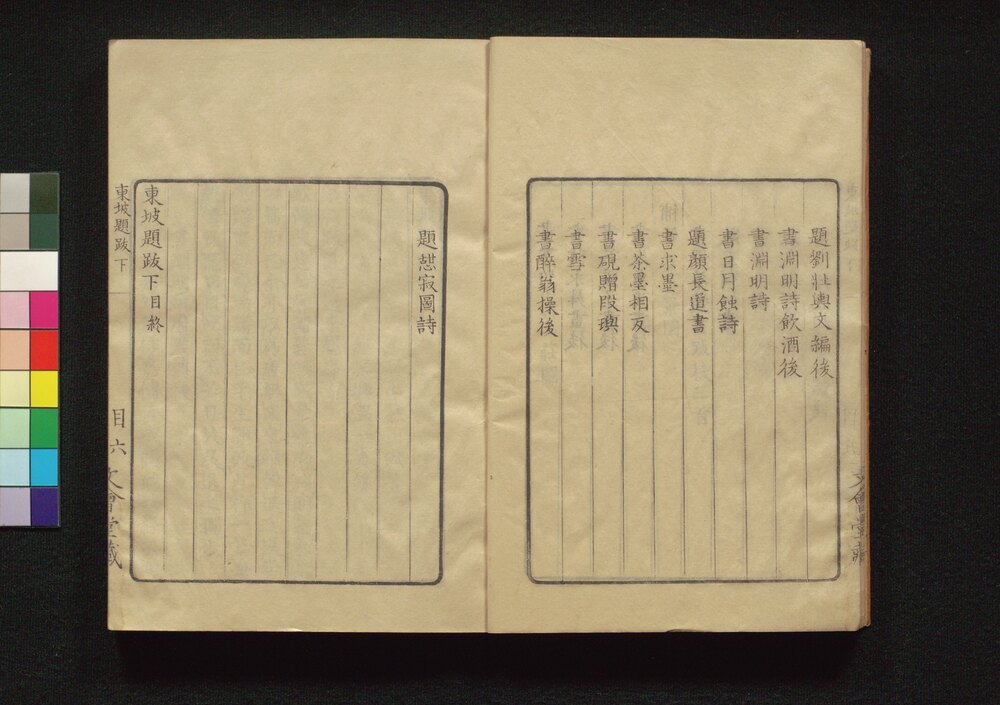 題劉壯輿文編後
書淵明詩飲酒後
書淵明詩
書日月蝕詩
題顔長道書
書求墨
書茶墨相反
書硯贈段璵
書雪
書醉翁操後
文會堂藏
題憩寂圖詩
東坡題跋下目終
東坡題跋下
目六
文會堂藏